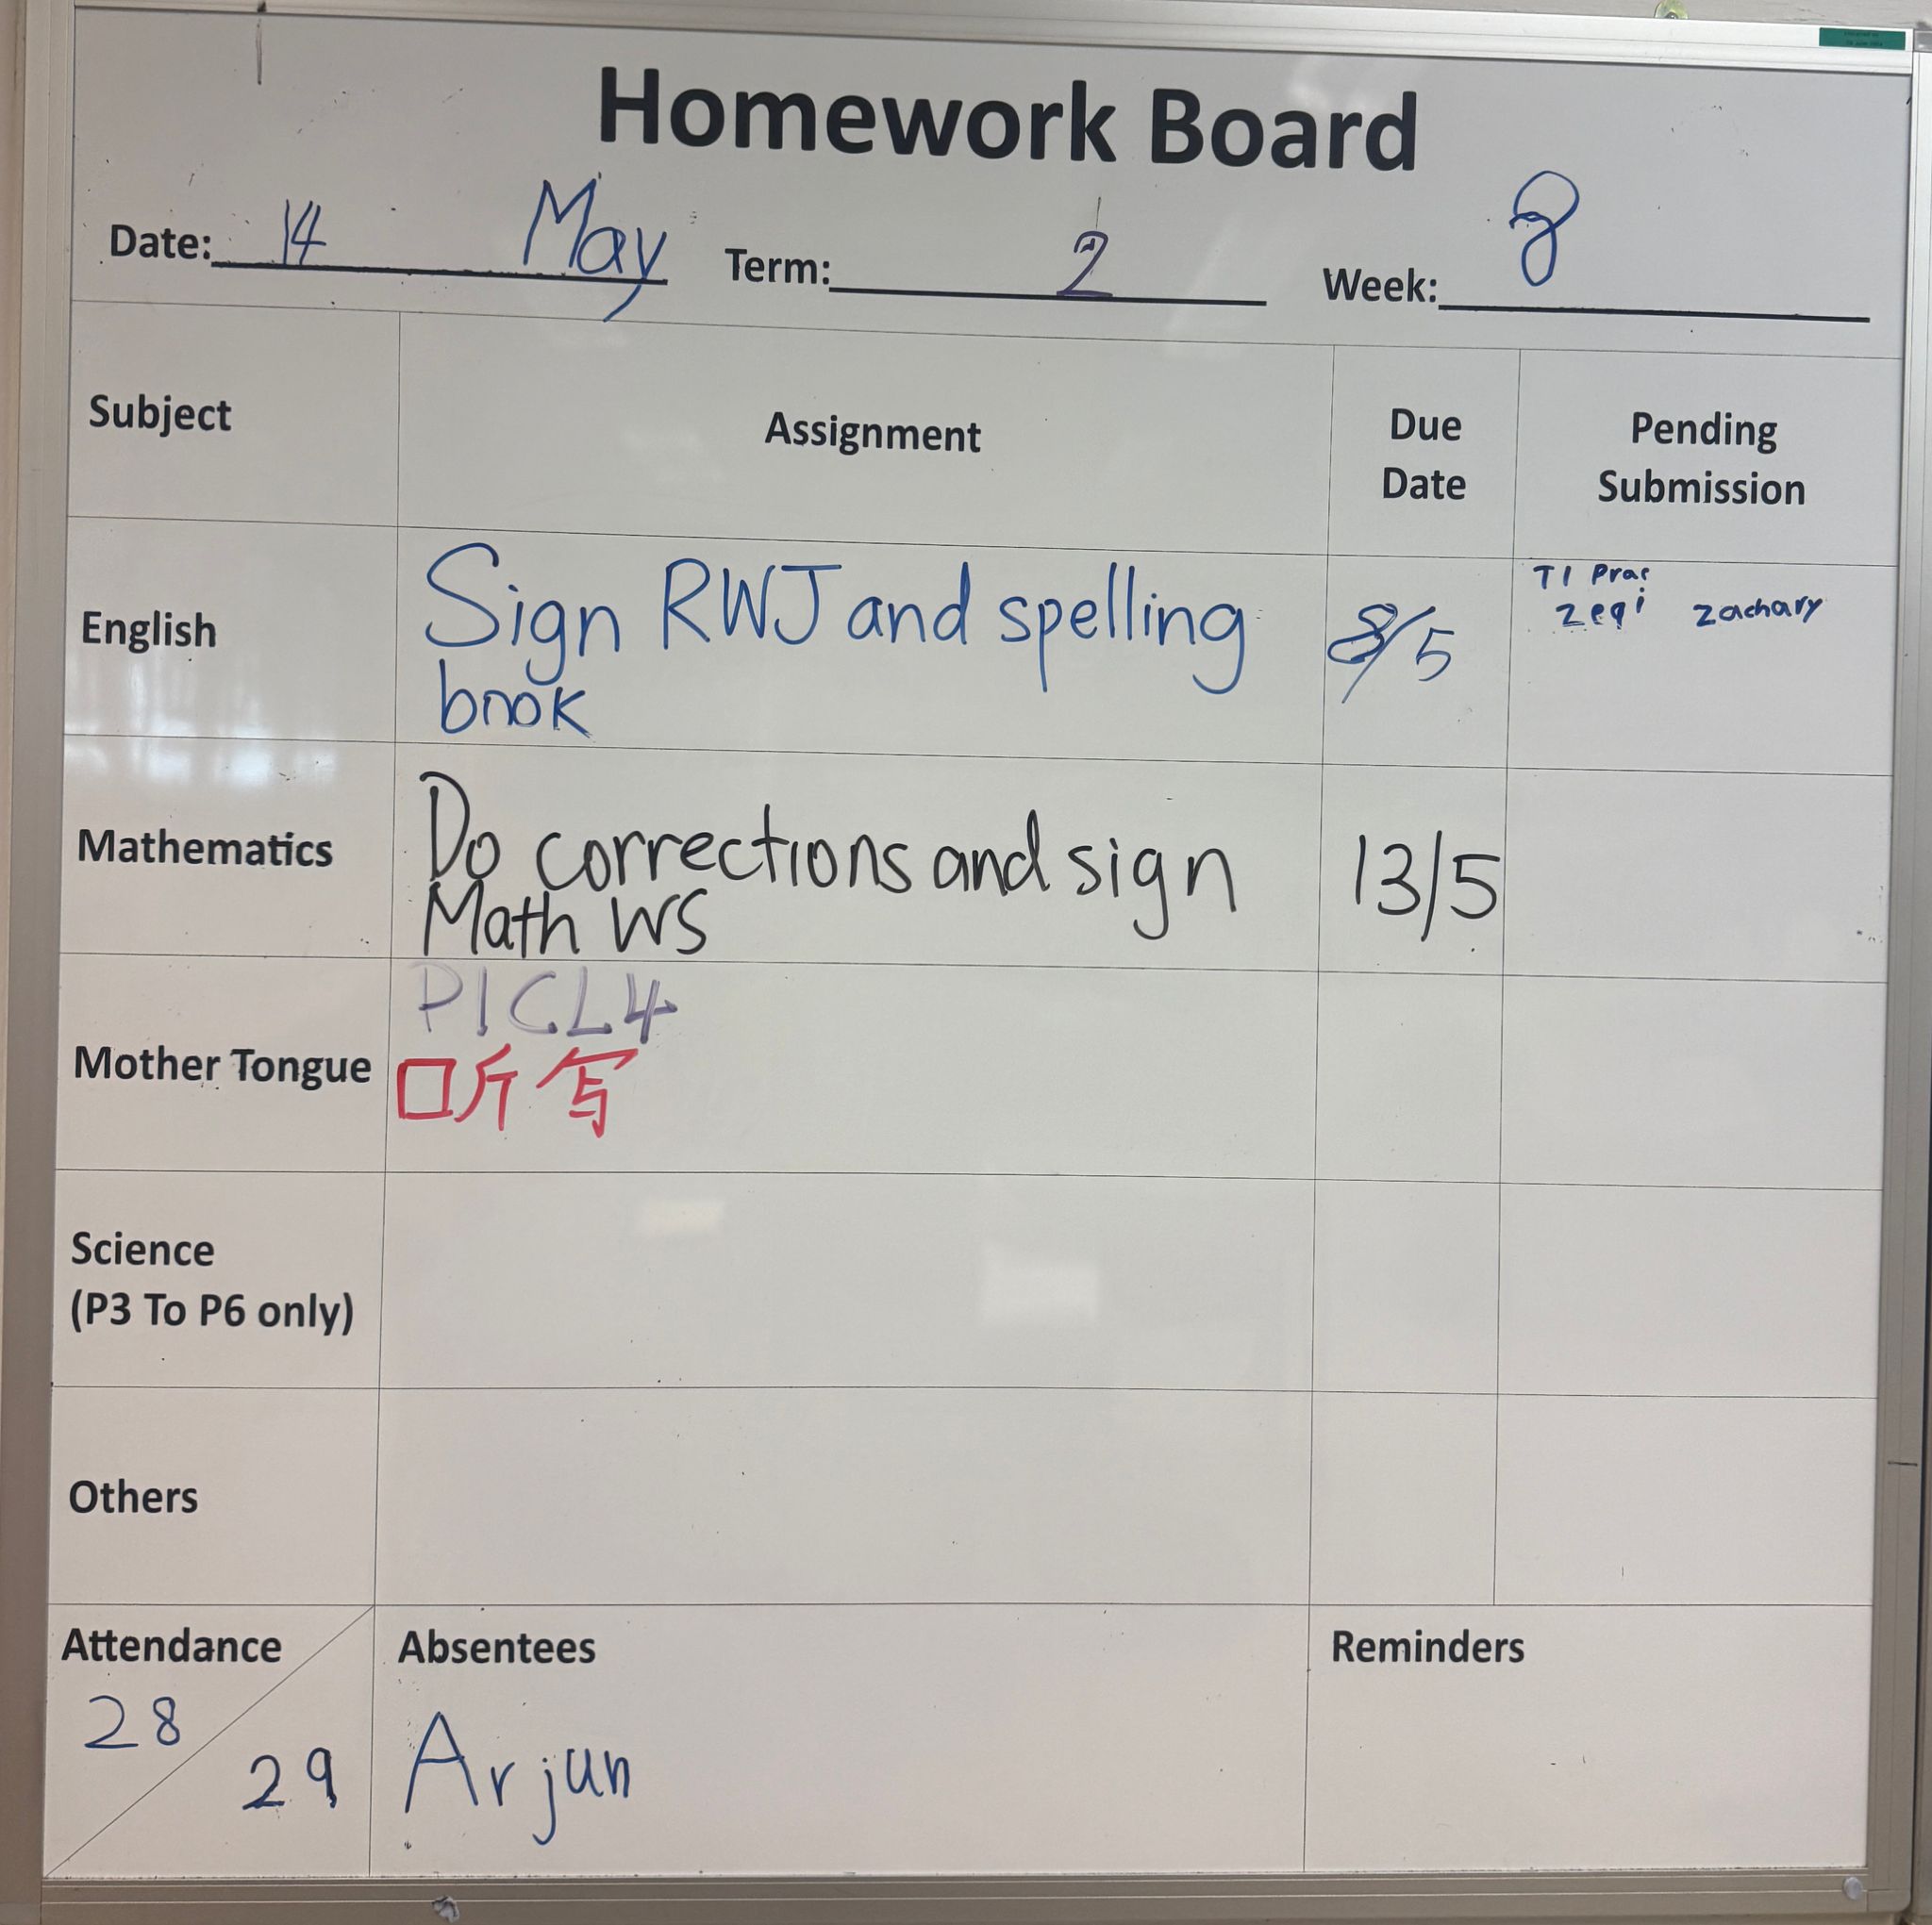 Homework Board
Date: 14 May Term: 2 Week: 8
Subject Assignment Due Date Pending Submission
English Sign RWJ and spelling book 8/5 T1 Prac Zeqi Zachary
Mathematics Do corrections and sign Math WS 13/5
Mother Tongue P1CL4
听写
Science
(P3 To P6 only)
Others
Attendance Absentees Reminders
28
29 Arjun